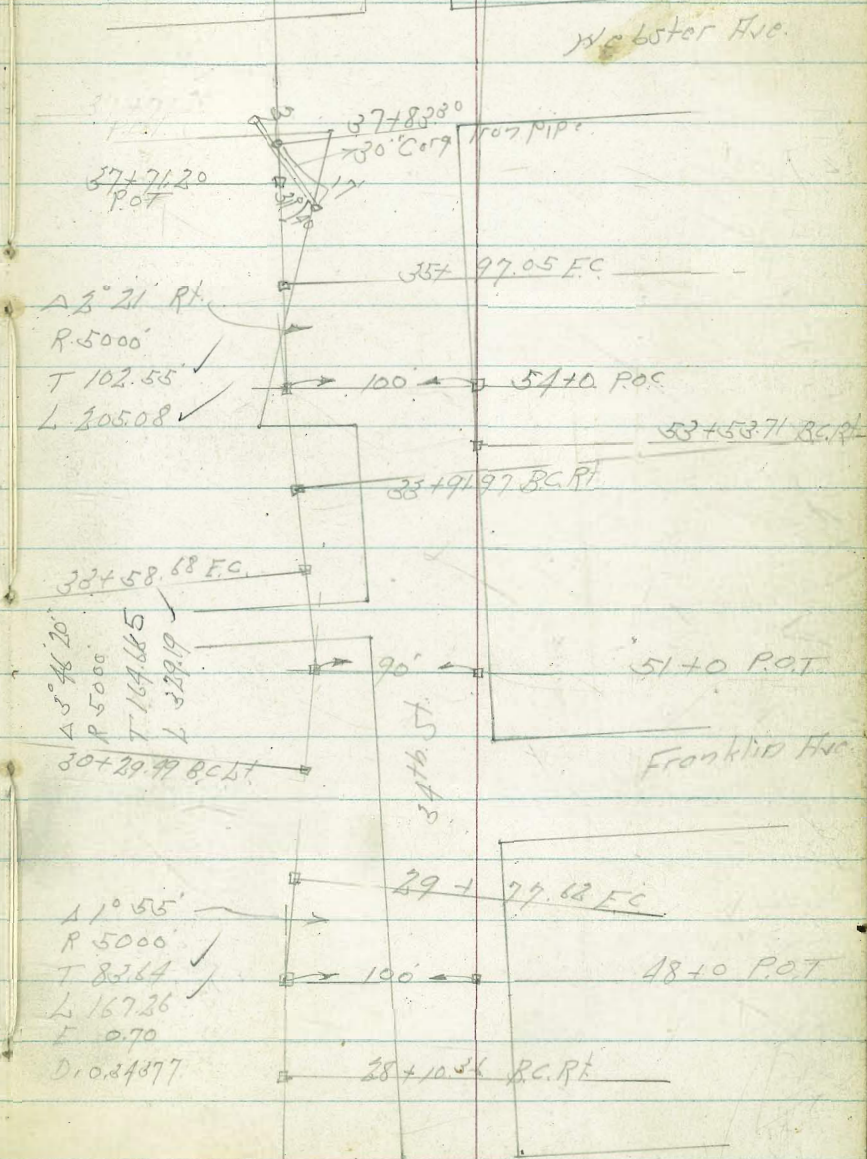 Webster Ave.
37+83³⁰
30" Corg Iron pipe
37+71.20
P.O.T
17'
35+97.05 E.C.
Δ 2° 21' Rt.
R. 5000'
T 102.55'
L 205.08
100'
54+0 P.O.C
53+53.71 B.C. Rt
33+91.97 B.C. Rt
33+58.68 E.C.
Δ 3° 46' 20"
R 5000
T 164.665
L 329.19
90'
51+0 P.O.T
30+29.49 B.C. Lt
34th. St.
Franklin Ave.
29+77.62 E.C
Δ 1° 55'
R 5000'
T 83.64
L 167.26
E 0.70
D. 0.34377
100'
48+0 P.O.T
28+10.36 B.C. Rt.